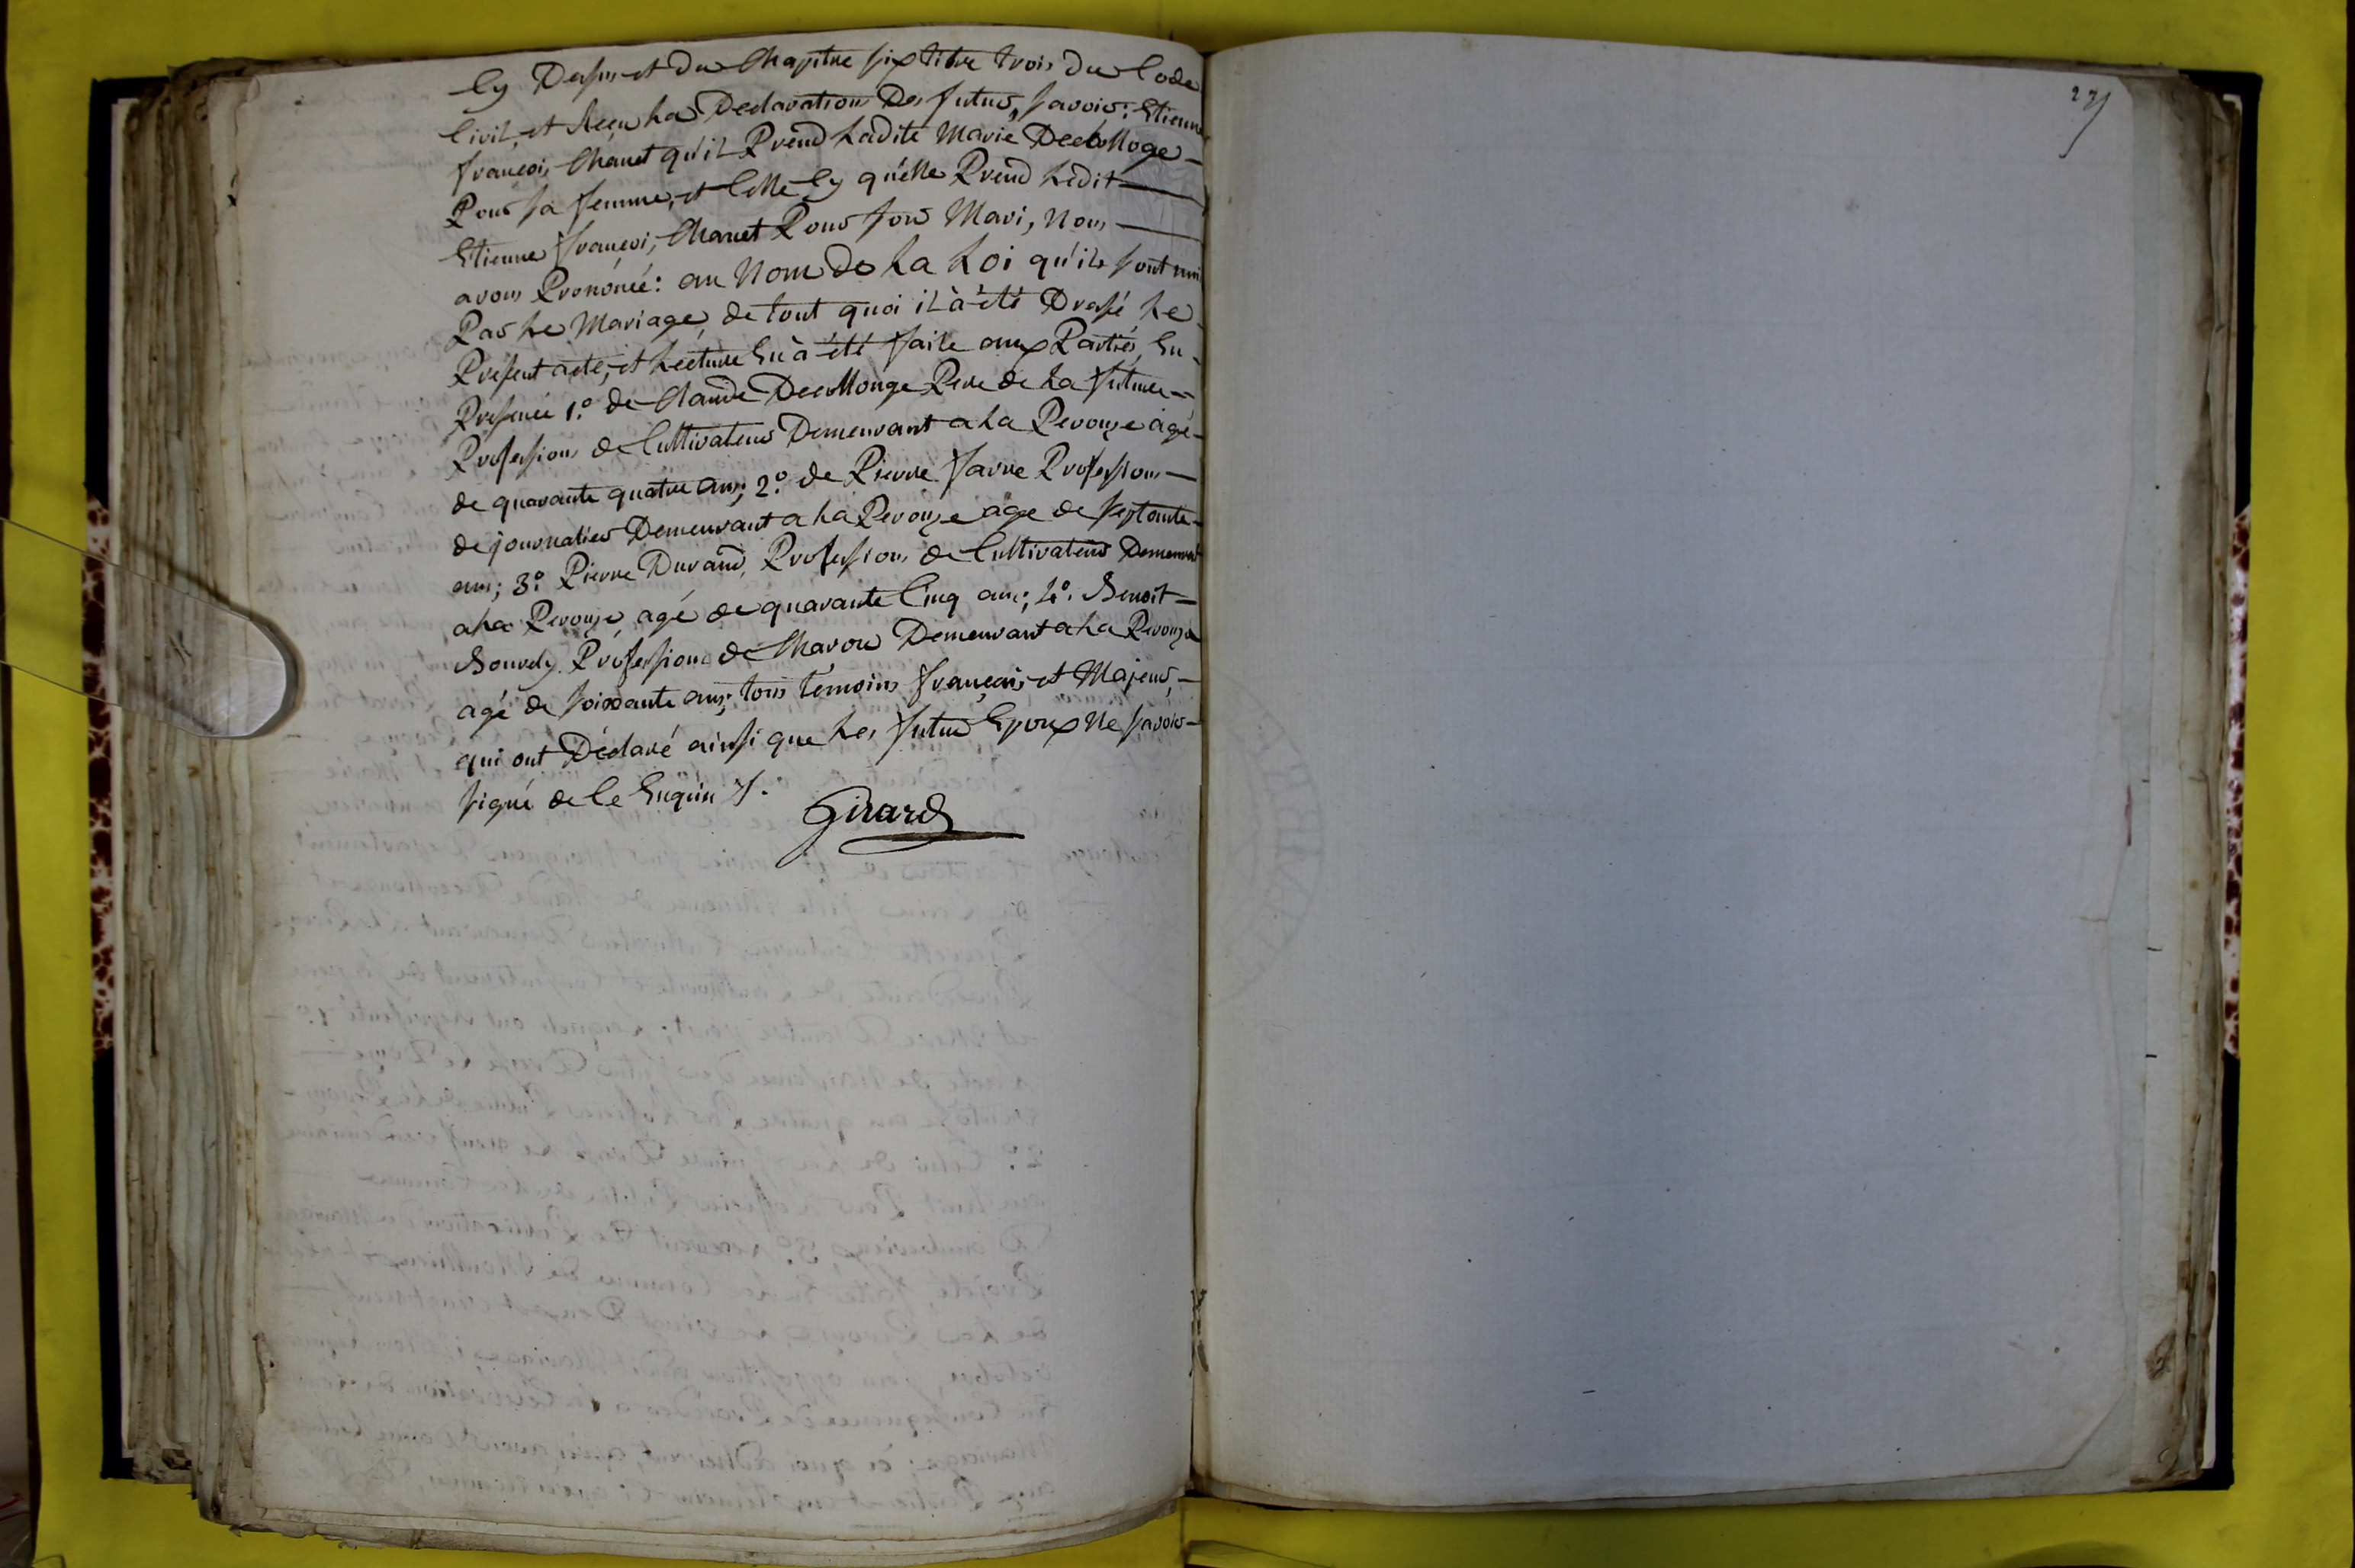 Cy Dessus et du Chapitre six titre trois du Code
Civil, et Reçu La Declaration Des futurs, savoir; Etienne
françois Chanet qu'il Prend Ladite Marie Decolloge
Pour sa femme, et Celle Cy qu'elle Prend Ledit
Etienne françois Chanet Pour son Mari, Nous
avons Prononcé: au Nom de La Loi qu'ils sont unis
Par Le Mariage, de tout quoi il à été Dressé Le
Présent acte, et Lecture En à été faite aux Parties En
Présence 1.º de Claude Decollonge Pere de La future
Profession de Cultivateur Demeurant a La Perouze agé
de quarante quatre ans; 2.º de Pierre favre Profession
de journalier Demeurant a La Perouze age de septante
ans; 3.º Pierre Durand, Profession de Cultivateur Demeurant
a La Perouze, agé de quarante Cinq ans; 4.º Benoit
Bourdy Profession de Charon Demeurant a La Perouze
agé de soixante ans, tous témoins français et Majeurs,
qui ont Déclaré ainsi que Les futurs Epoux Ne savoir
signé de Ce Enquis
Girard
27